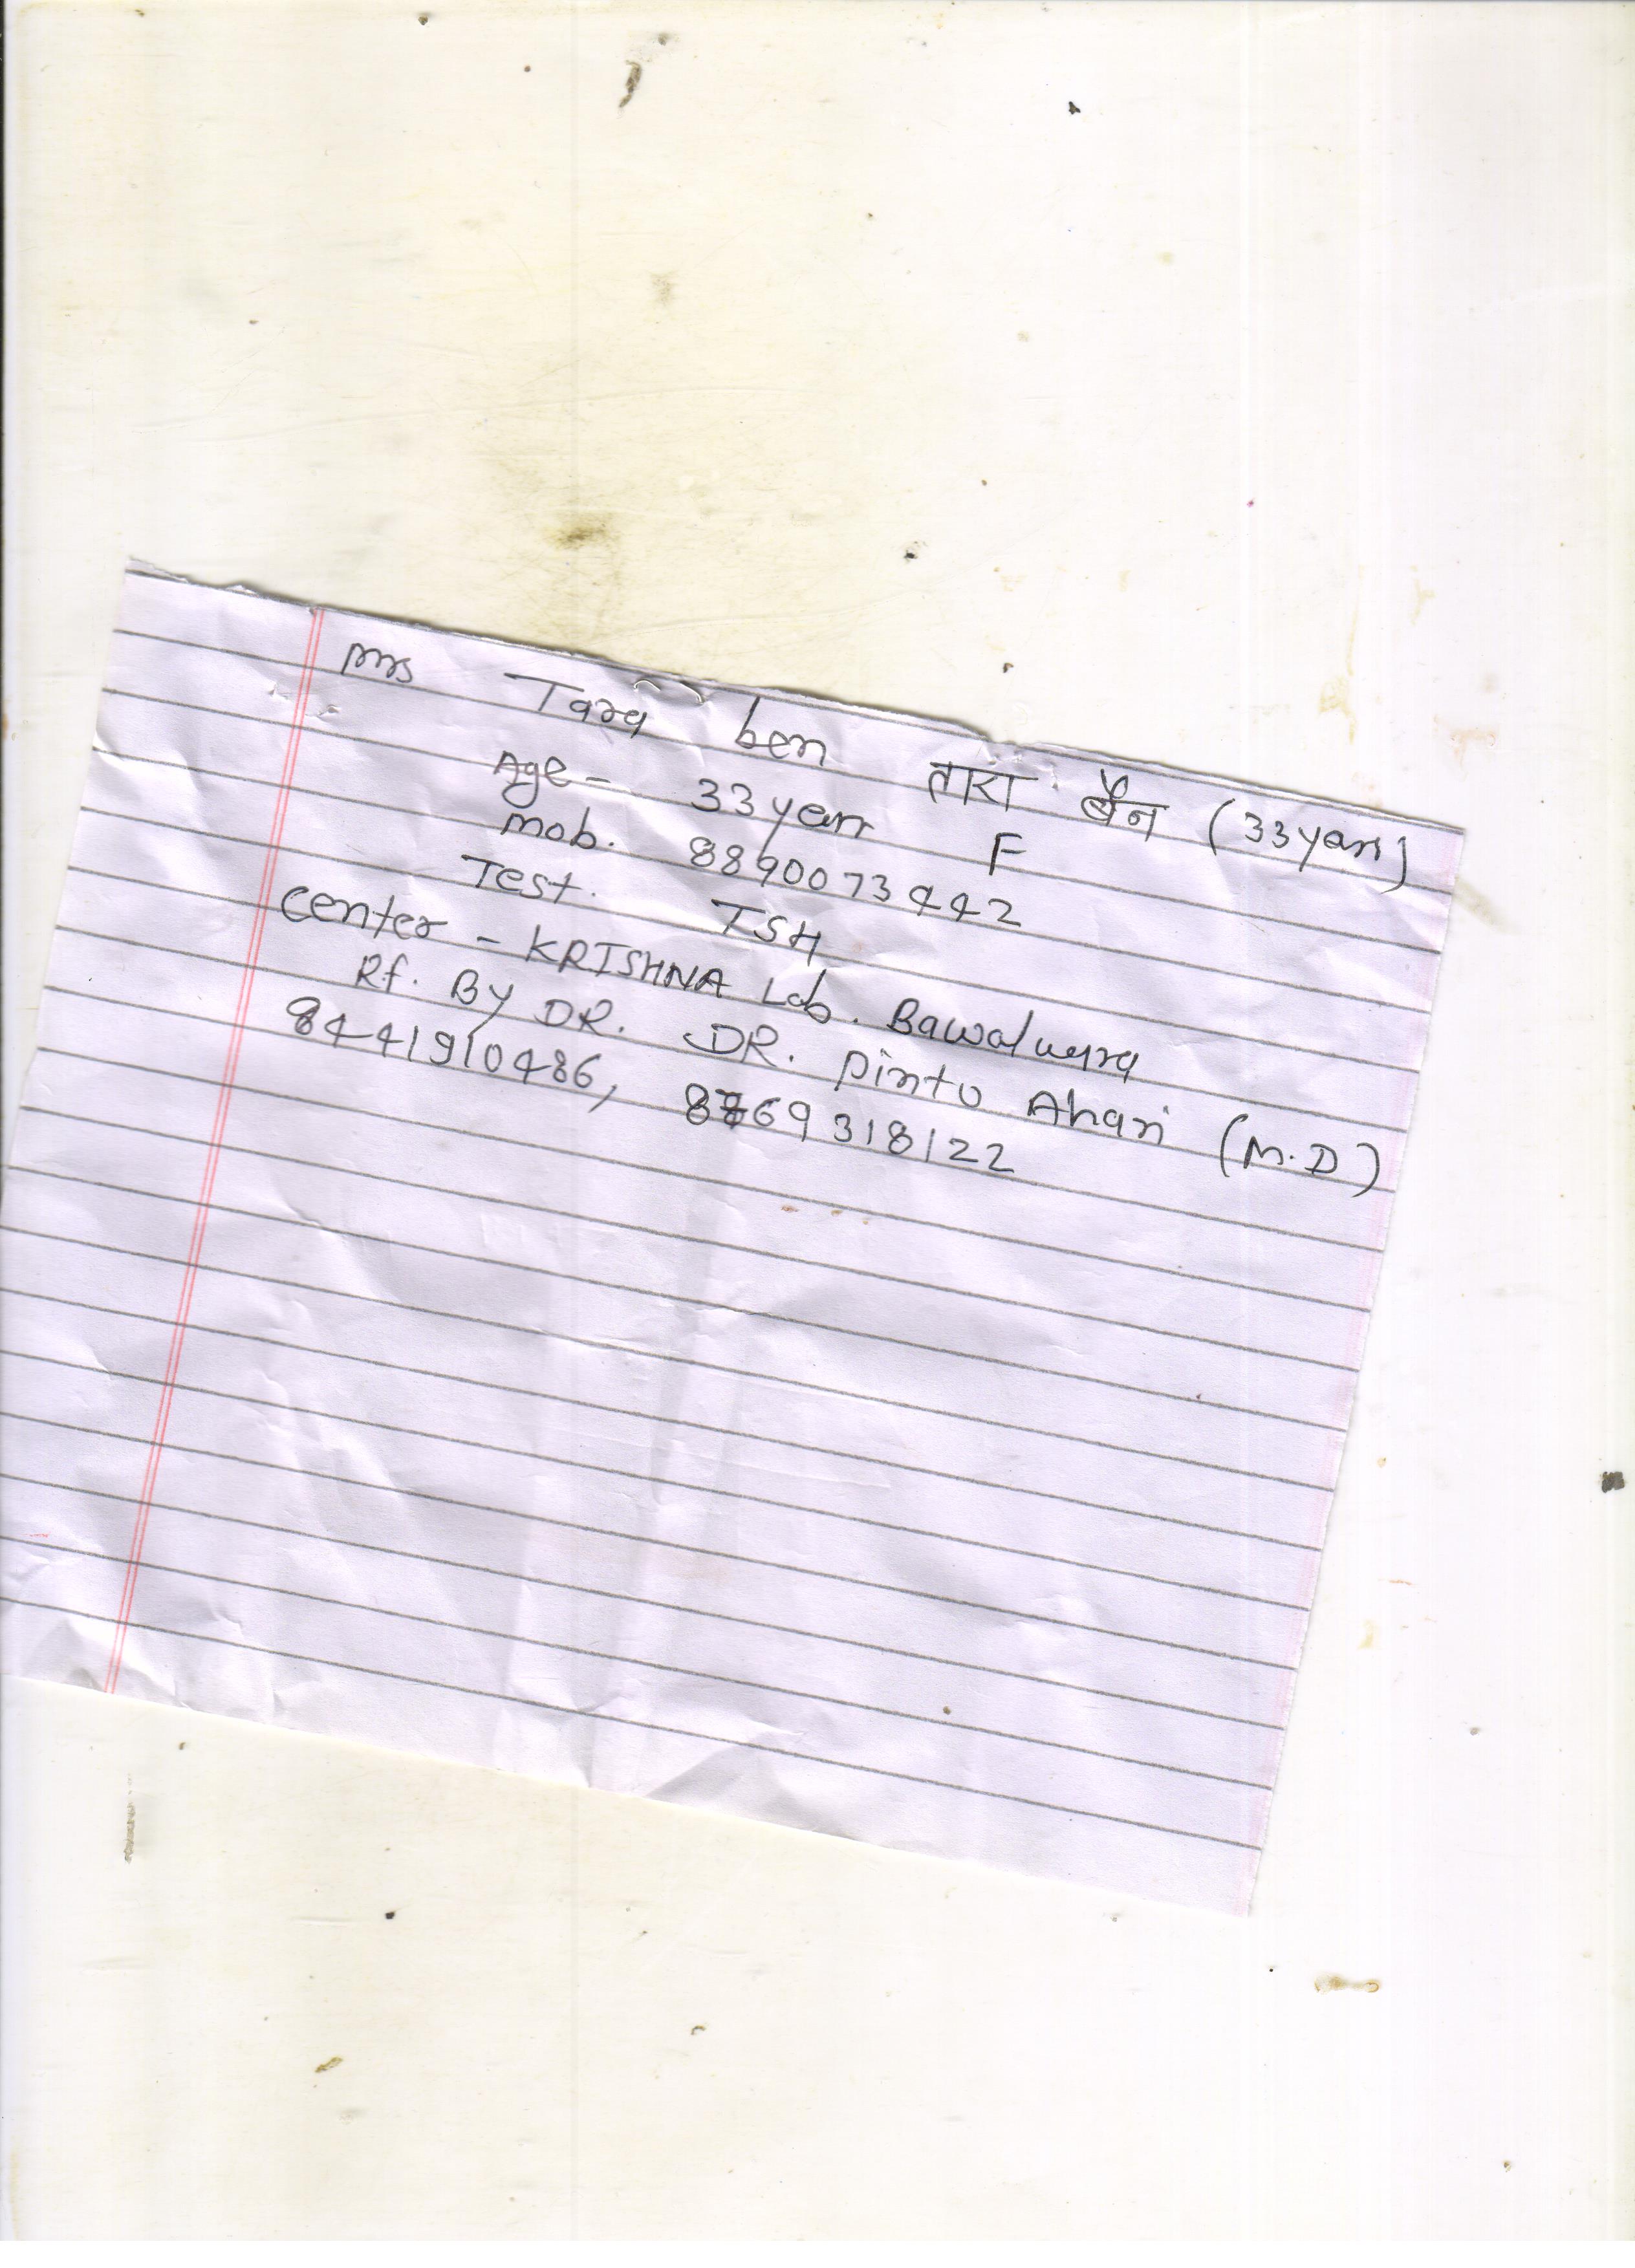 Mrs Tara ben तारा बैन (33 years)
Age - 33 years F
Mob. 8890073442
Test. TSH
Center - KRISHNA Lab. Bawalwara
Rf. By DR. DR. Pintu Ahari (M.D)
8441910486, 8769318122